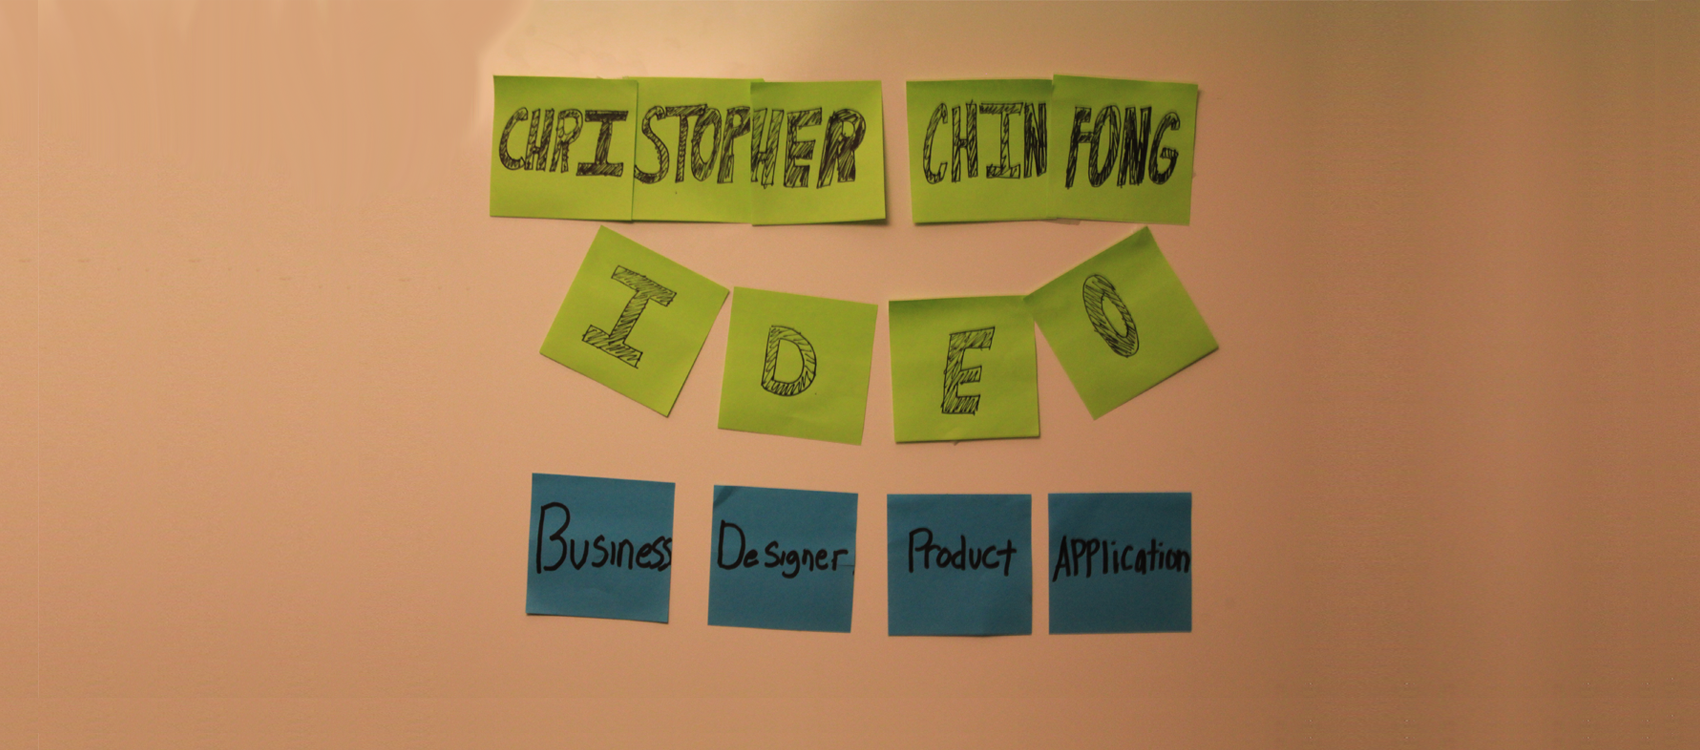 CHRISTOPHER CHIN FONG
IDEO
Business Designer Product APPlication